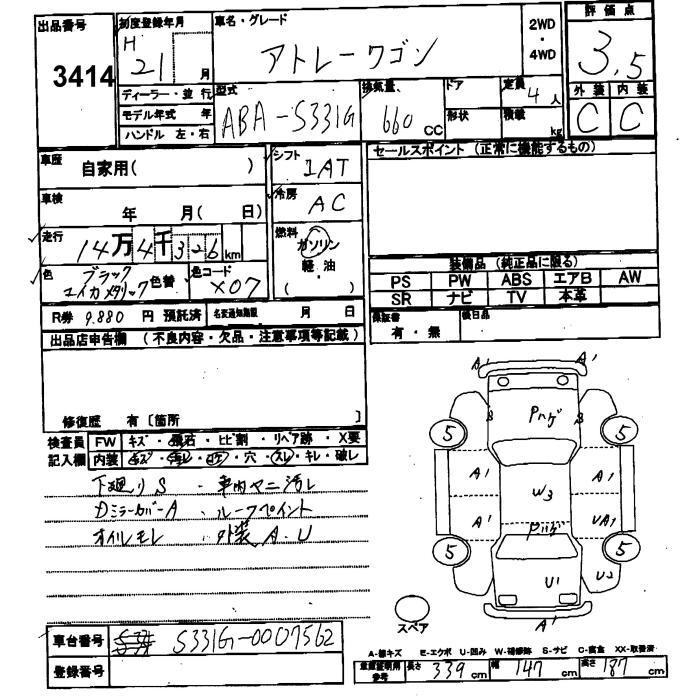 出品番号 初度登録年月 車名・グレード 2WD ・ 4WD 評価点
3414 H 21 月 アトレーワゴン 3.5
ディーラー・並行 型式 排気量 ドア 定員 4 人 外装 内装
モデル年式 年 ABA-S331G 660 CC 形状 積載 kg C C
ハンドル 左・右
車歴 自家用( ) シフト IAT セールスポイント (正常に機能するもの)
車検 年 月( 日) 冷房 AC
走行 14万4千326km 燃料 ガソリン 軽・油 ( )
色 ブラック マイカメタリック 色替 色コード X07 装備品 (純正品に限る)
PS PW ABS エアB AW
SR ナビ TV 本革
R券 9.880 円 預託済 名変通知期限 月 日 保証書 有・無 後日品
出品店申告欄 (不良内容・欠品・注意事項等記載)
修復歴 有〔箇所 〕
検査員 FW キズ・飛石・ヒビ割・リペア跡・X要
記入欄 内装 キズ・汚レ・コゲ・穴・スレ・キレ・破レ
下廻りS ・車内ヤニ汚レ
Dミラーカバー A ・ルーフペイント
オイルモレ ・外装 A.U
A' A'
S Pハゲ S
5 5
A' W3 A'
A' Pハゲ UA1
5 5
U1 U2
A'
スペア
車台番号 S331G-0007562
登録番号
A-線キズ E-エクボ U-凹み W-補修跡 S-サビ C-腐食 XX-取替済
自動車専用参考 長さ 339 cm 幅 147 cm 高さ 187 cm